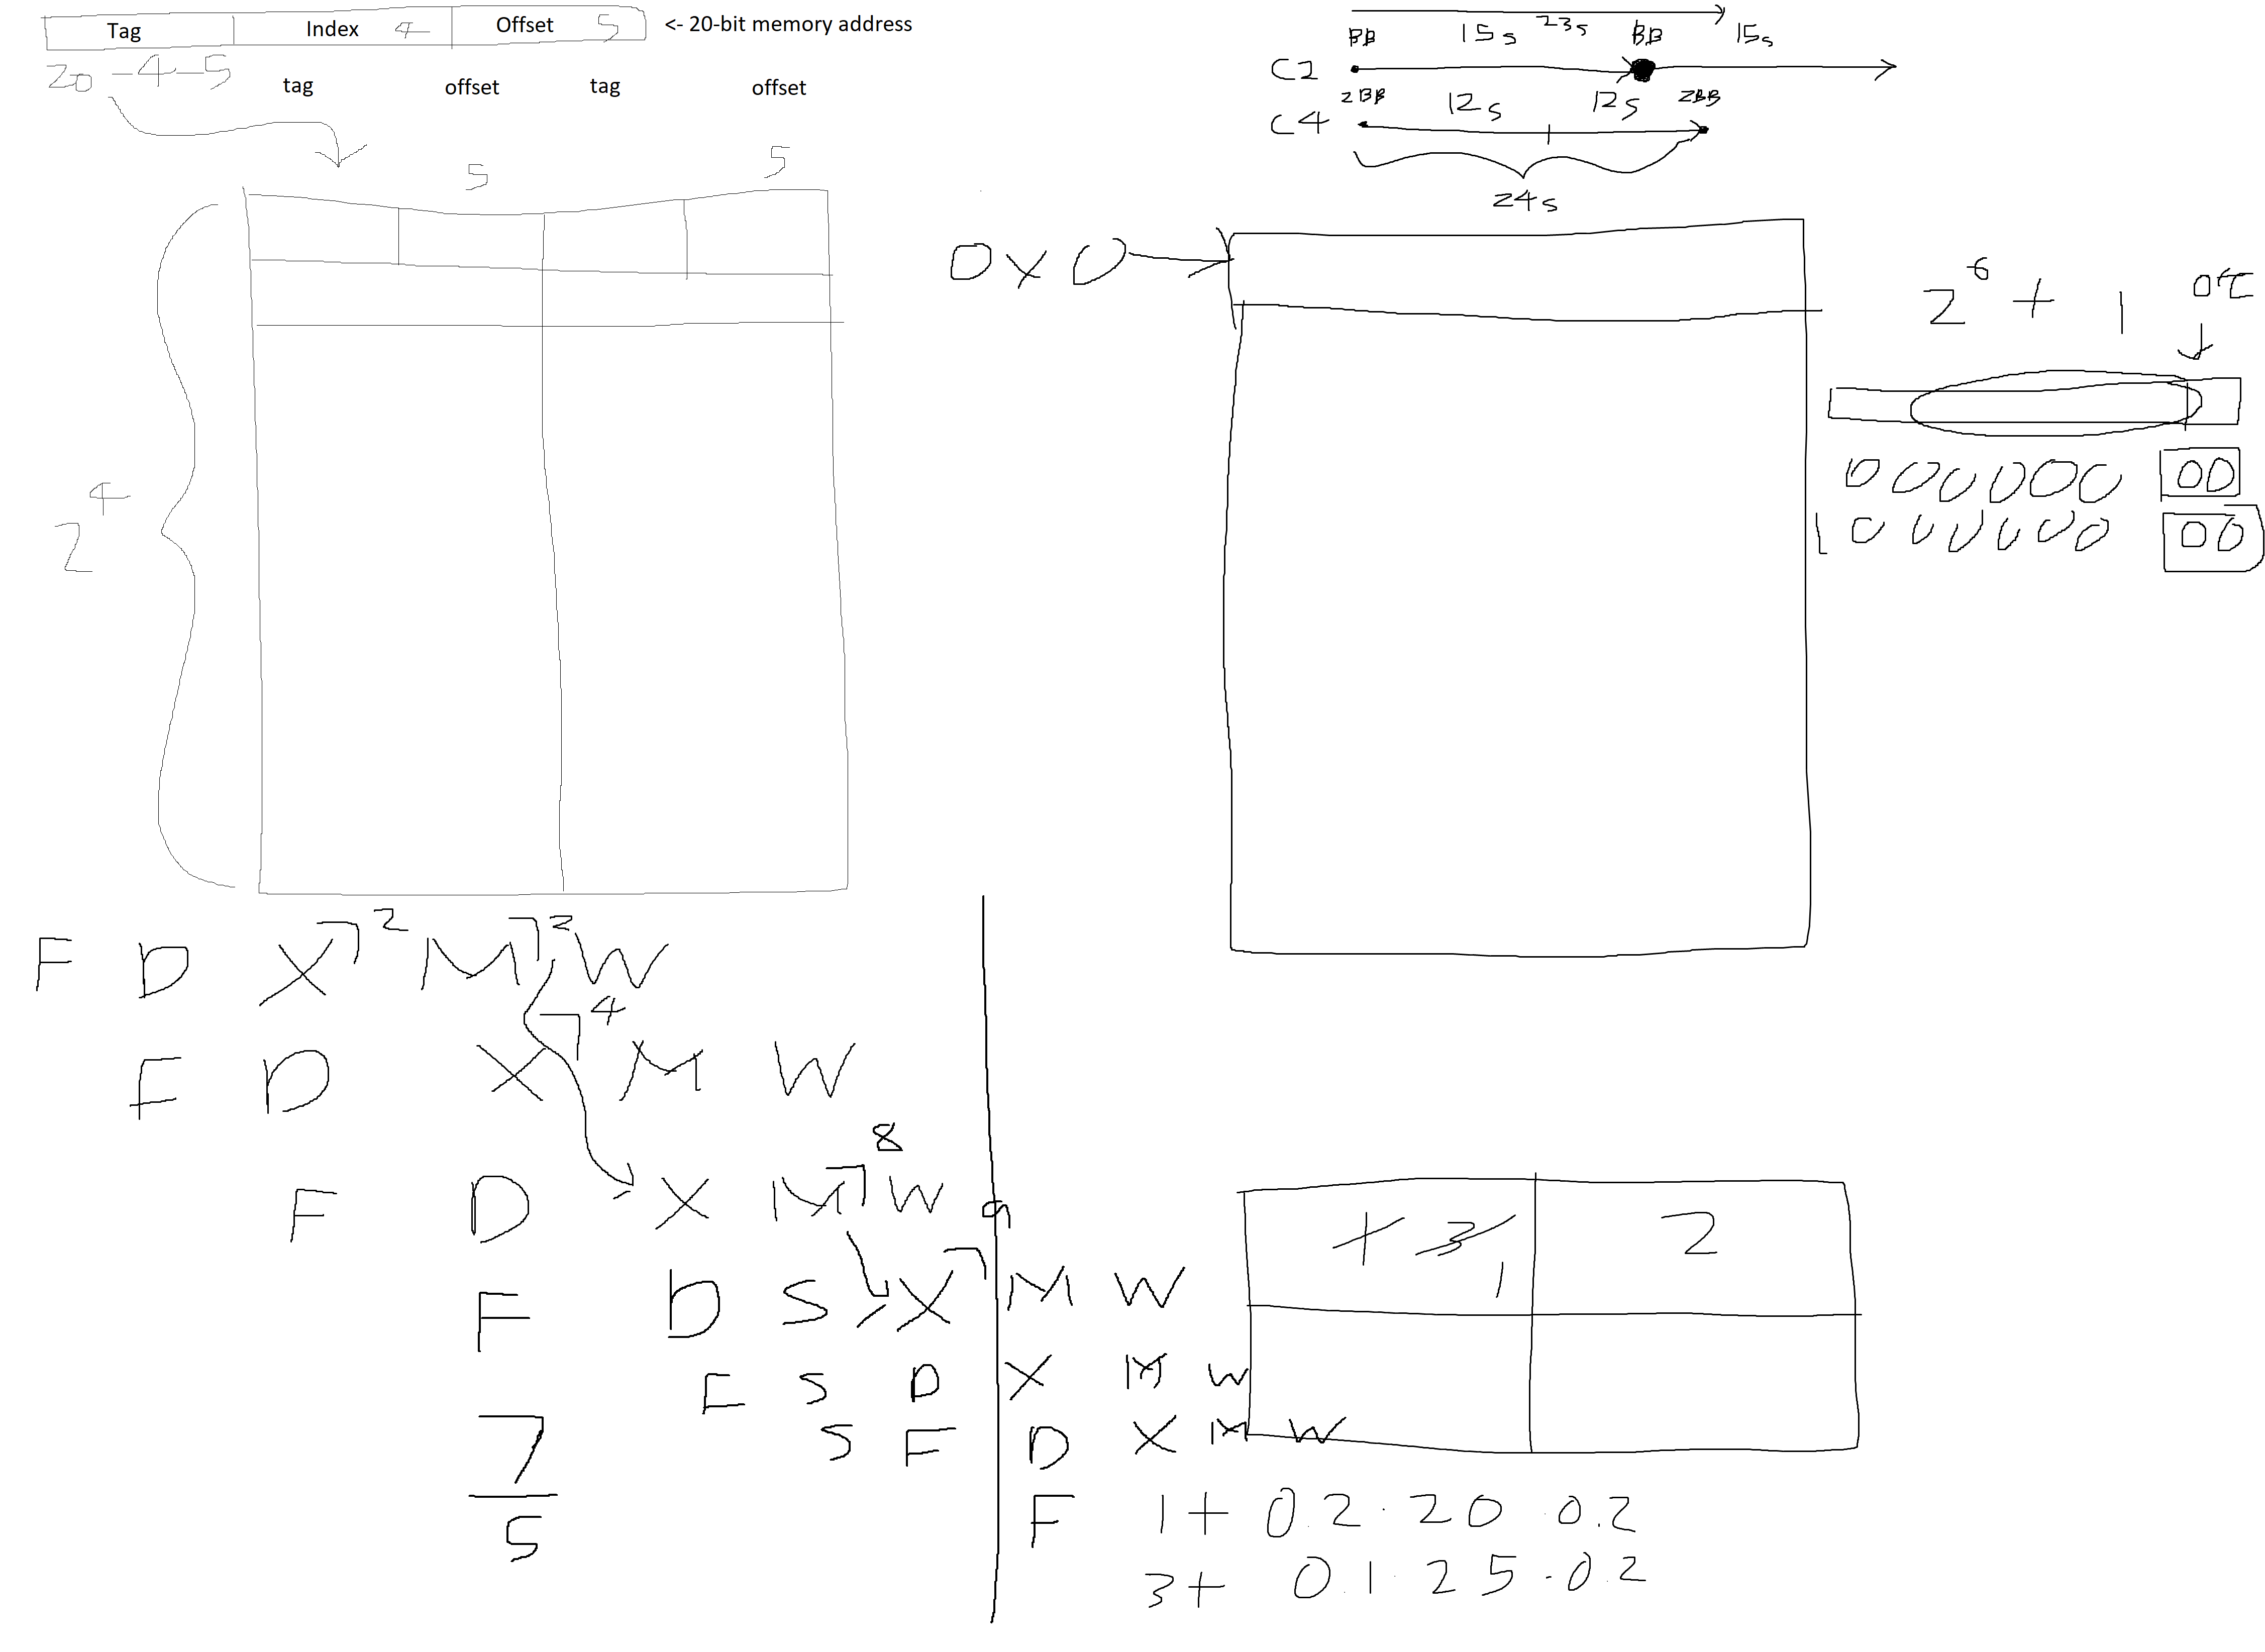 Tag Index 4 Offset 5 <- 20-bit memory address
20 - 4 - 5
tag offset tag offset
5 5
2^4
BB 15s 23s BB 15s
C2
2BB 12s 12s 2BB
C4
24s
0x0
2^6 + 1
000000 00
1000000 00
F D X 2 M 2 W
F D X 4 M W
F D X M 8 W
F D S X 9 M W
F S D X M W
S F D X M W
F
7
5
1 3 1 2
1 + 0.2 · 20 · 0.2
3 + 0.1 · 25 · 0.2